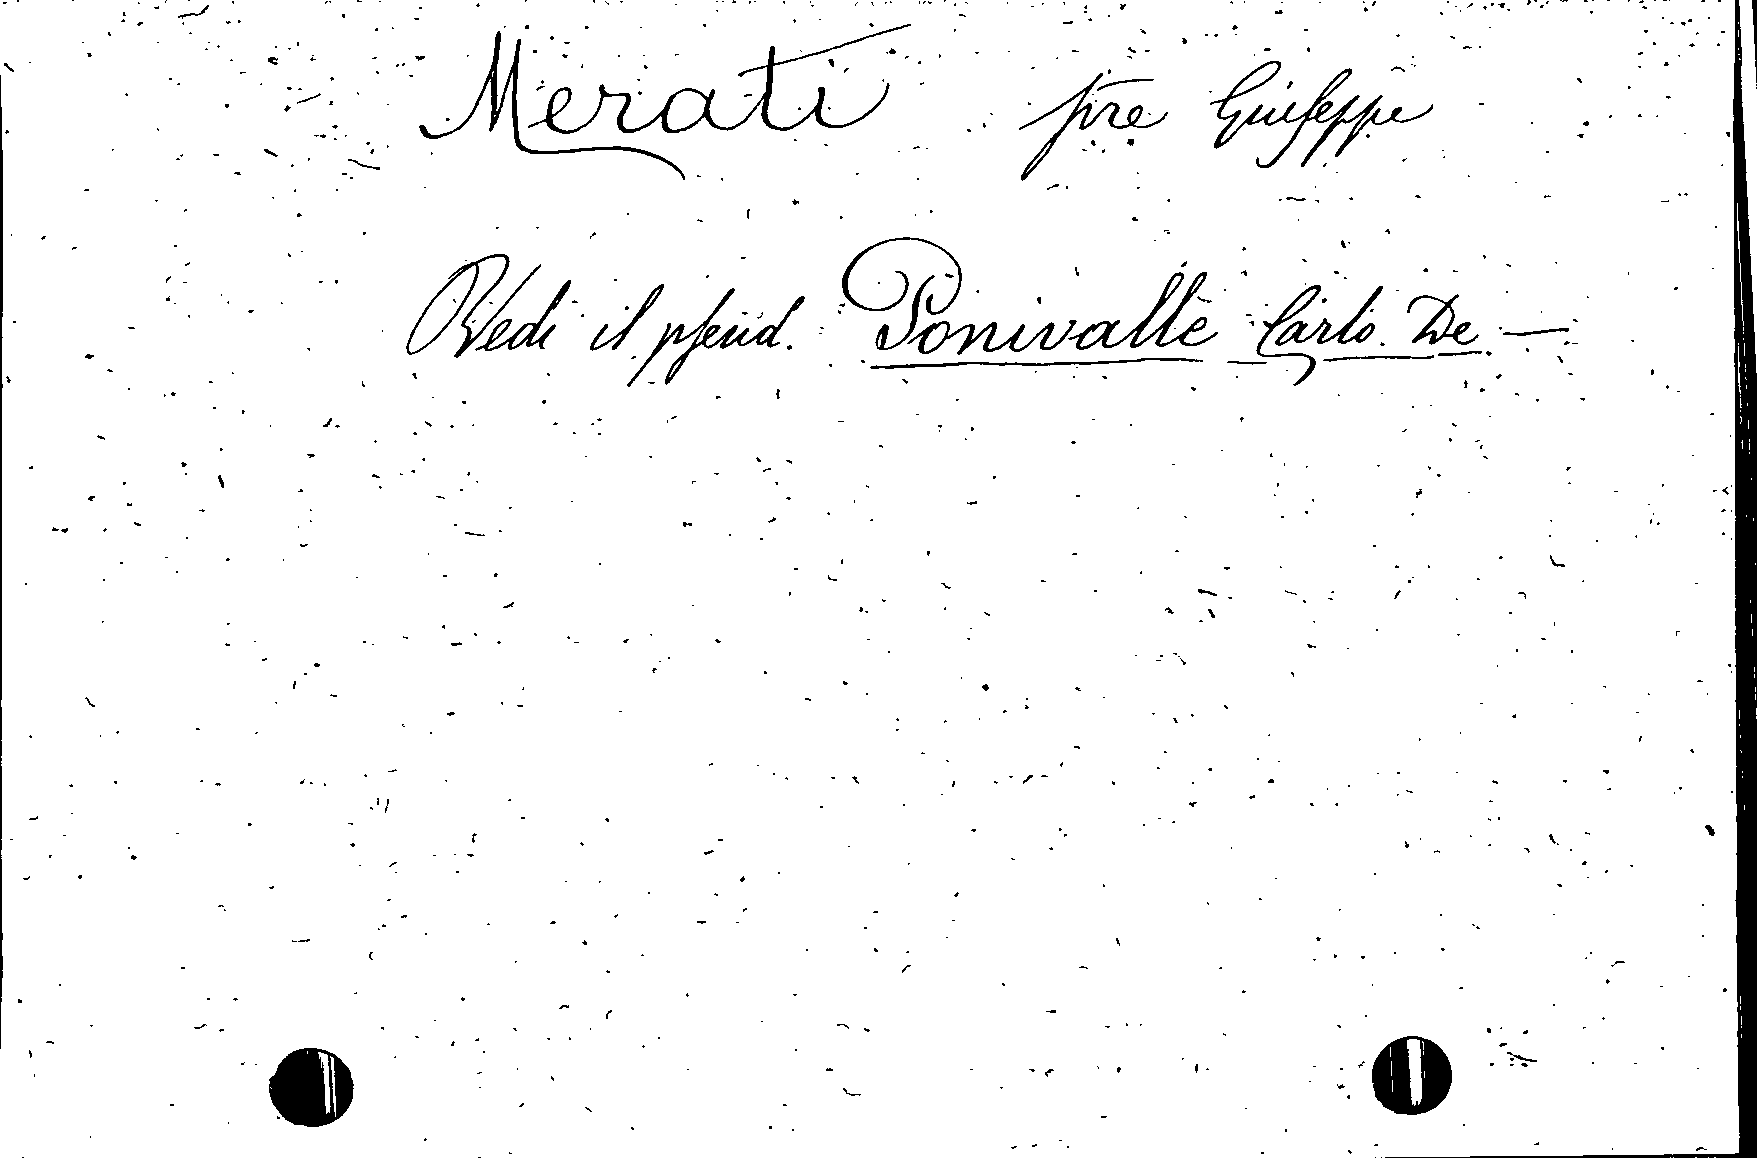 Merati pre Giuseppe
Vedi il pseud. Ponivalle Carlo De —